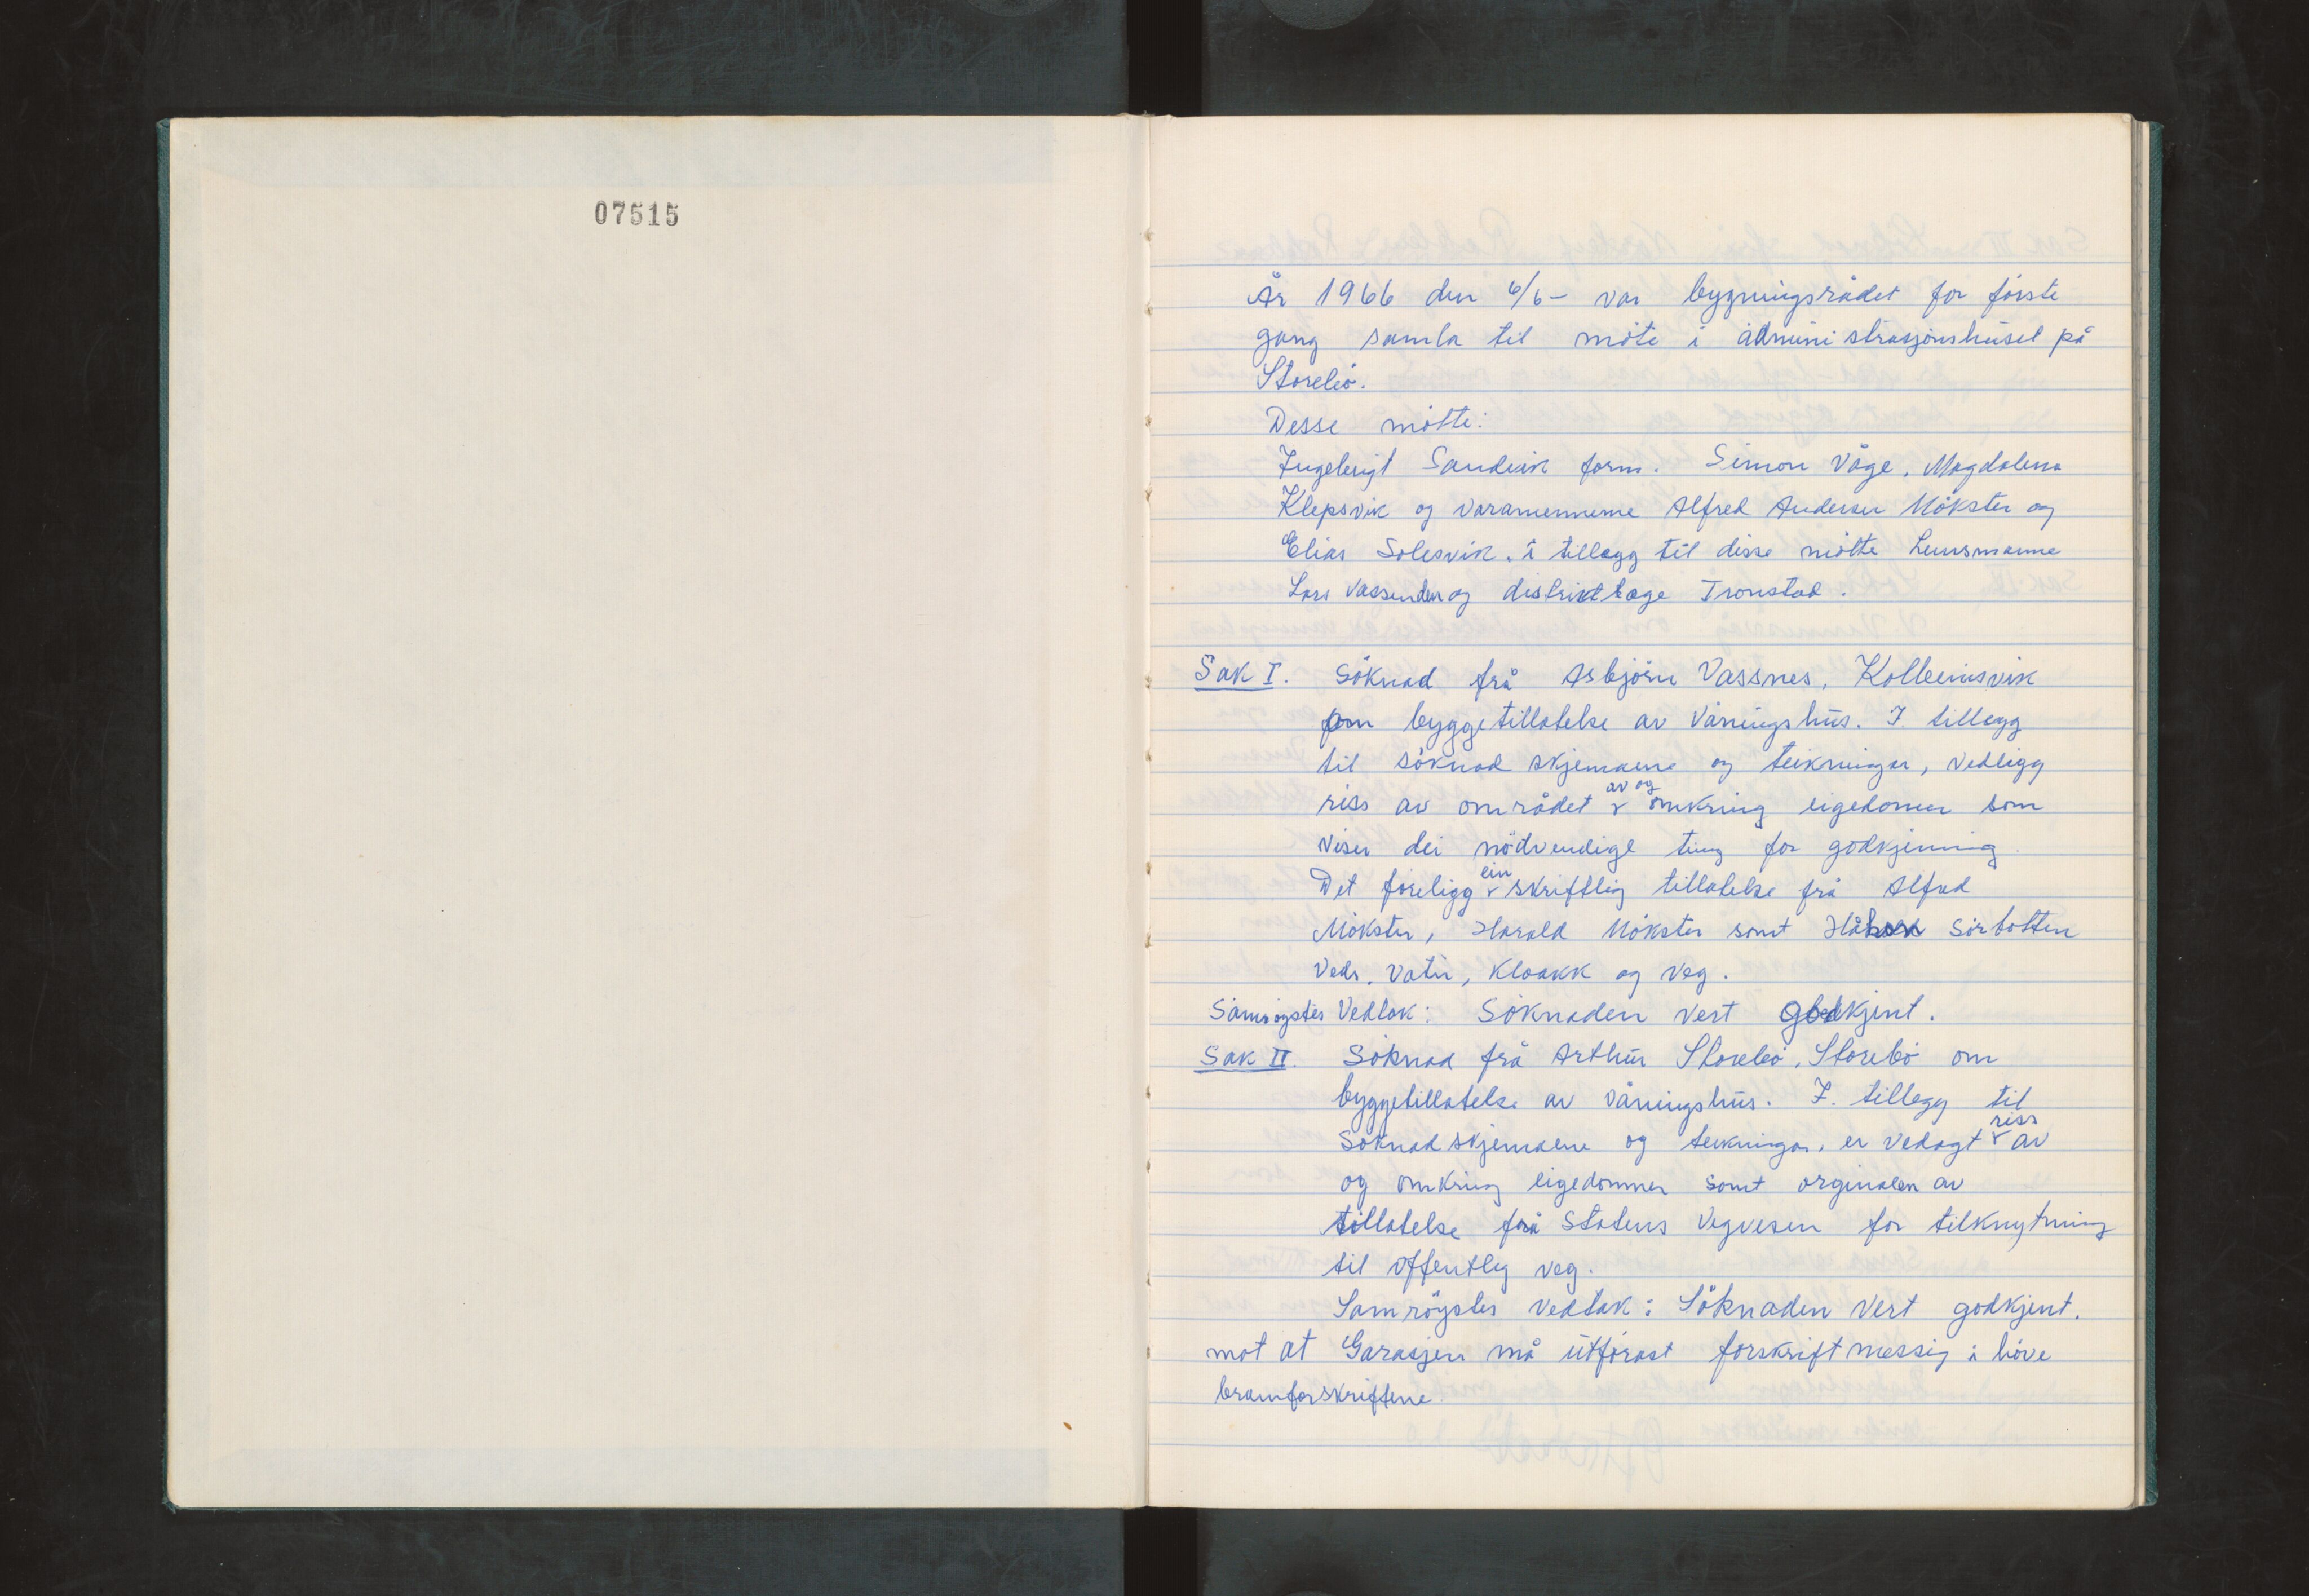 07515
År 1966 den 6/6 - var bygningsrådet for første
gang samla til møte i administrasjonshuset på
Storebö.
Desse møtte:
Ingebrigt Sandvik form. Simon Våge, Magdalena
Klepsvik og varamennene Alfred Andersen Mökster og
Elias Solesvik. i tillegg til disse møtte Lensmanne
Lars Vassenden og distriktlege Tronstad.
Sak I. Söknad frå Asbjörn Vassnes, Kolbeinsvik
om byggetillatelse av Våningshus. I tillegg
til söknad skjemaene og teikningar, vedligg
riss av området av og omkring eigedomen som
viser dei nödvendige ting for godkjenning
Det föreligg ein skriftlig tillatelse frå Alfred
Mökster, Harald Mökster samt Håkon Sörbotten
Vedr. Vatn, Kloakk og veg.
Samrøystes Vedtak: Söknaden vert godkjent.
Sak II. Söknad frå Arthur Storebö, Storebö om
byggetillatelse av våningshus. I. tillegg til
Söknad skjemaene og teikningar, er vedagt riss av
og omkring eigedommen samt orginalen av
tillatelse frå Statens Vegvesen for tilknytning
til offentleg veg.
Samröystes vedtak: Söknaden vert godkjent.
mot at Garasjen må utförast forskriftmessig i höve
brannforskriftene